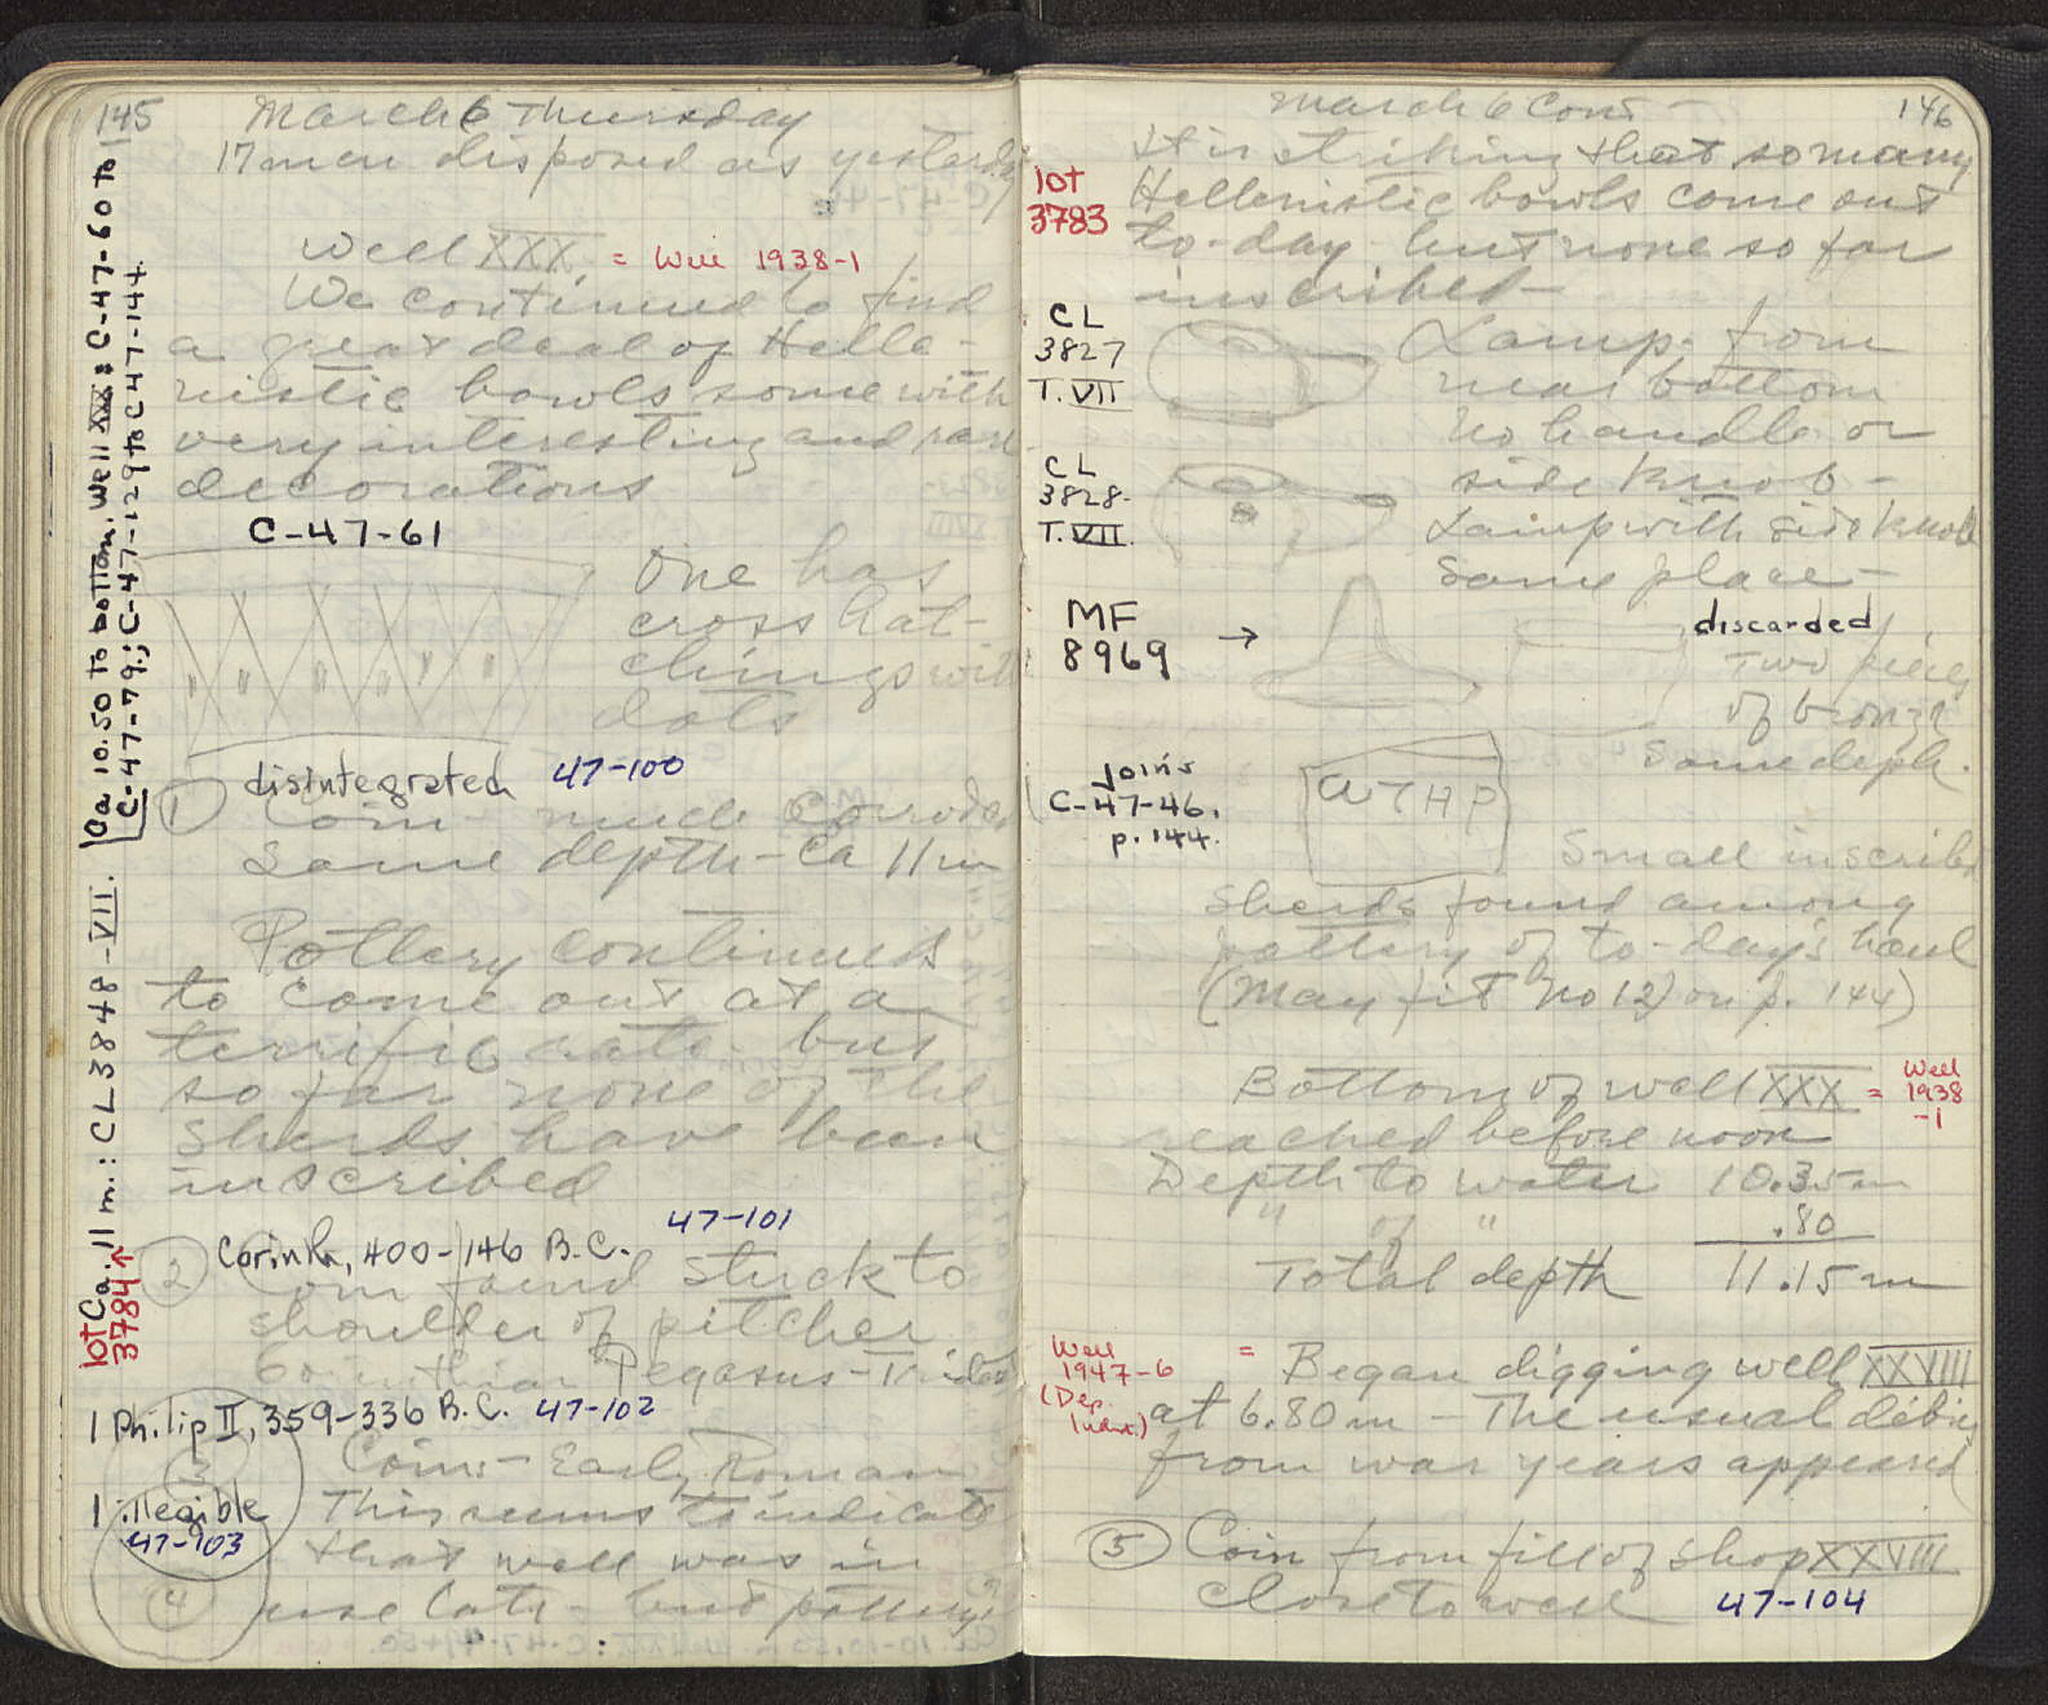 145
March 6 Thursday
17 men disposed as yesterday
Well XXX = Well 1938-1
We continued to find
a great deal of Helle-
nistic bowls some with
very interesting and rare
decorations
C-47-61
One has
cross hat-
chings with
dots
1 disintegrated 47-100
Coin - much corroded
same depth - ca 11 m
Pottery continued
to come out at a
terrific rate - but
so far none of the
sherds have been
inscribed
47-101
2 Corinth, 400-146 B.C.
Coin found stuck to
shoulder of pitcher
Corinthian Pegasus - Trident
1 Philip II, 359-336 B.C. 47-102
3 Coins - Early Roman
1 illegible This seems to indicate
47-103 that well was in
4 use late - but pottery
Ca 10.50 to bottom. Well XXX: C-47-60 to
C-47-79.; C-47-129 to C-47-144.
lot Ca. 11 m.: CL 3848-VII.
3784
March 6 Cont
146
It is striking that so many
lot
3783
Hellenistic bowls come out
to-day but none so far
inscribed -
CL
3827
T. VII
Lamp. from
near bottom
No handle or
side knob -
CL
3828-
T. VII.
Lamp with side knob
Same place -
MF
8969 →
discarded
Two pieces
of bronze
Same depth.
joins
C-47-46.
p. 144.
ΑΤΗΡ
Small inscribed
sherds found among
pottery of to-day's haul
(May fit No 12) on p. 144)
Bottom of well XXX = Well 1938-1
reached before noon
Depth to water 10.35 m
" of " .80
Total depth 11.15 m
Well
1947-6
(Dep.
= Began digging well XXVIII
at 6.80 m - The usual débris
from war years appeared
5 Coin from fill of shop XXVIII
Close to well 47-104